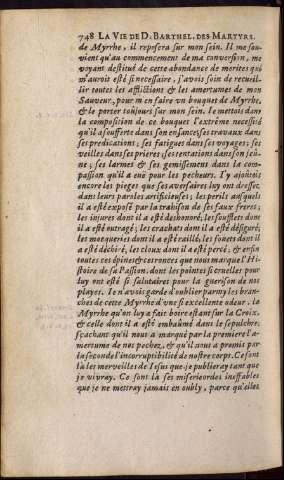 748 LA VIE DE D. BARTHEL. DES MARTYRS
de Myrrhe, il reposera sur mon sein. Il me sou-
vient qu'au commencement de ma conversion, me
voyant destitué de cette abondance de merites qui
m'auroit esté si necessaire, j'avois soin de recueil-
lir toutes les afflictions & les amertumes de mon
Sauveur, pour m'en faire un bouquet de Myrrhe,
& le porter toûjours sur mon sein. Ie mettois dans
la composition de ce bouquet l'extrême necessité
qu'il a soufferte dans son enfance, ses travaux dans
ses predications; ses fatigues dans ses voyages; ses
veilles dans ses prieres; ses tentations dans son jeû-
ne; ses larmes & ses gemissemens dans la com-
passion qu'il a euë pour les pecheurs. I'y ajoûtois
encore les pieges que ses aversaires luy ont dressez
dans leurs paroles artificieuses; les perils ausquels
il a esté exposé par la trahison de ses faux freres;
les injures dont il a esté deshonoré; les soufflets dont
il a esté outragé; les crachats dont il a esté défiguré;
les mocqueries dont il a esté raillé; les foüets dont il
a esté déchiré, les cloux dont il a esté percé; & enfin
toutes ces épines & ces ronces que nous marque l'Hi-
stoire de sa Passion, dont les pointes si cruelles pour
luy ont esté si salutaires pour la guerison de nos
playes. Ie n'avois garde d'oublier parmy les bran-
ches de cette Myrrhe d'une si excellente odeur, la
Myrrhe qu'on luy a fait boire estant sur la Croix,
& celle dont il a esté embaûmé dans le sepulchre;
sçachant qu'il nous a marqué par la premiere l'a-
mertume de nos pechez, & qu'il nous a promis par
la seconde l'incorruptibilité de nostre corps. Ce sont
là les merveilles de Iesus que je publieray tant que
je vivray. Ce sont là ses misericordes ineffables
que je ne mettray jamais en oubly, parce qu'elles